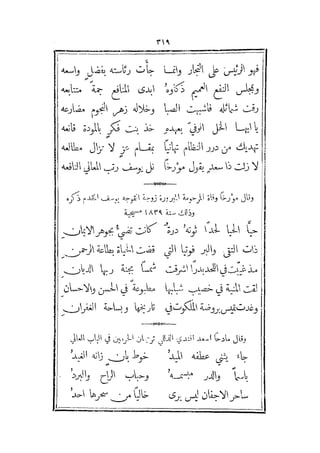 ٣١٩
فهو الرئيس على التجار وانمـا جأت رئاسته بفضلٍ واسعه
وبمجلس النفع العميم ذكاوهُ ابدى المنافع جمةً متتابعه
رقت شمائله فاشبهت الصبا وخلاله زهر النجوم مضارعه
يا ايهـا الخل الوفيّ بعهدهِ خذ بنت فكرٍ بالمودة قانعه
تهديك من درر النظام تهانياً بمقـام عزٍ لا تزال مطالعه
لا زلت ذا سعدٍ يقول مؤرخاً نل يوسف رتب المعالي النافعه
وقال مؤرخاً وفاة المرحومة المبرورة زوجة الخواجه يوسف المتقدم ذكره
وذلك سنة ١٨٣٩ مسيحية
حيَّا الحيا لحداً ثوتهُ درةٌ كانت تضيءُ بجوهر الايمان
ذات التقى والبر فوتيا التي قضت الحياة بطاعة الرحمن
مذ غيّبت في اللحد بدرًا اشرقت شمسًا بجنة ربها الديان
لقت المنية في خصيب شبابها مطبوعة في الحسن والاحسان
وغدت تميس بروضة الملكوت في تاريخها وبساحة الغفران
وقال مادحاً اسعد افندي ترجمان الحرمين في الباب العالي
جاء يثني عطفه الميدُ خوط بانٍ زانه الغيدُ
باسماً والدر مبسمـهُ وحباب الراح والبردُ
ساحر الاجفان ليس يرى خالياً من سحرها احدُ